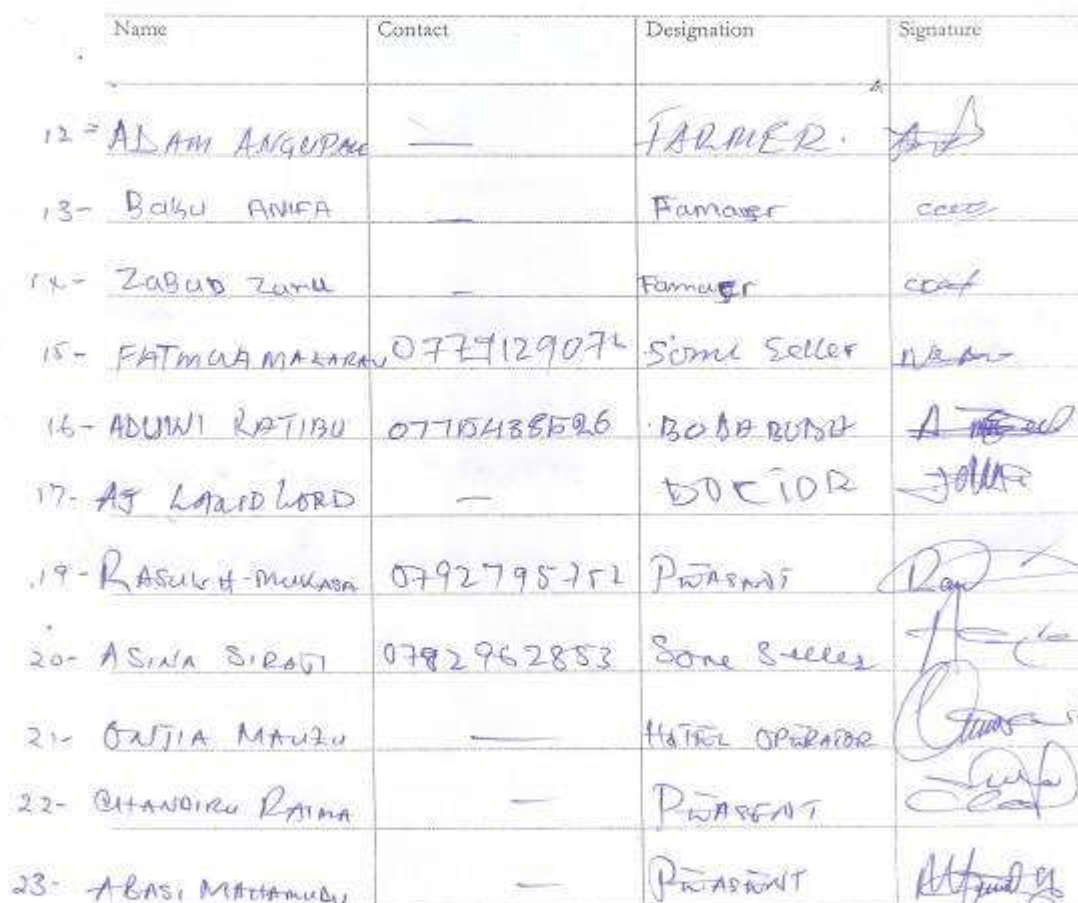 Name Contact Designation Signature
12= ADAM — FARMER.
13- Babu ANIFA — Famaer
14- ZABUD Zanu — Famaer
15- FATMUA 0779129072 Somi Seller
16- ADUWI RATIBU BODA BODA
17- AJ LANDLORD — DOCTOR
19- RASUL H-MUKASA 0792795752 PEASANT
20- ASINA SIRAJI 0782962853 Some Seller
21- ONJIA MAUZU — HOTEL OPERATOR
22- CHANDIRU RAIMA — PEASENT
23- ABASI MAHAMUDU — PEASENT